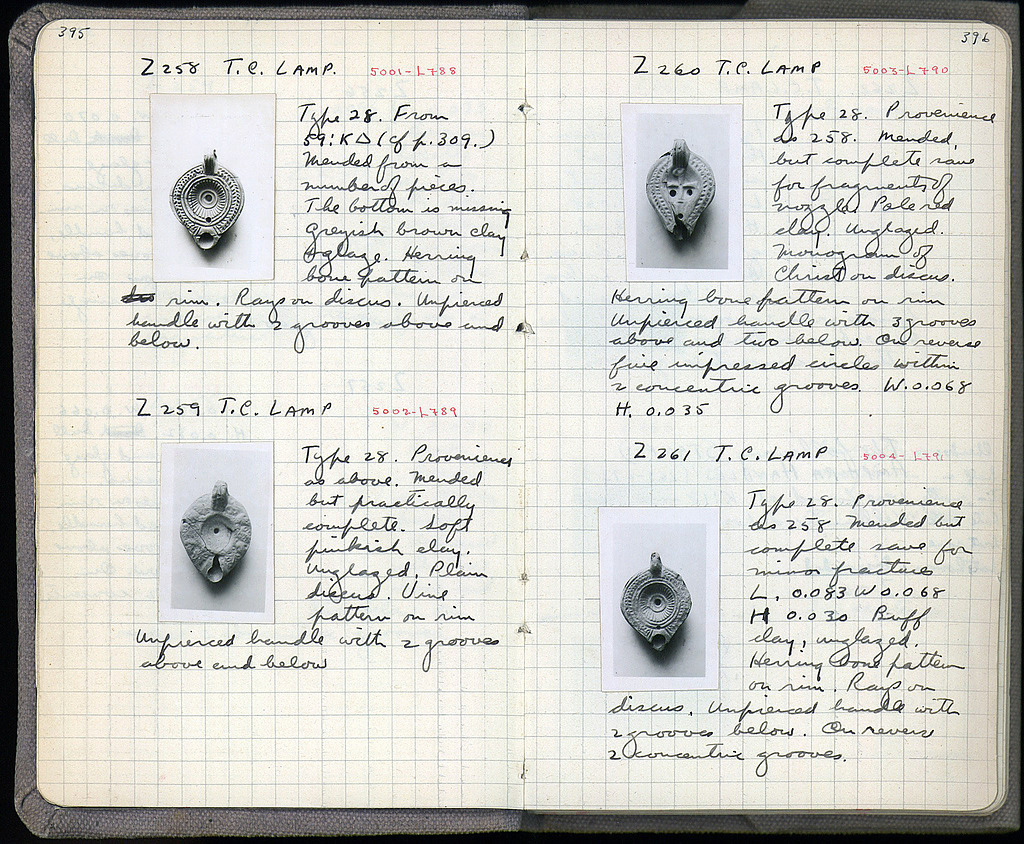 395
Z 258 T.C. LAMP. 5001-L788
Type 28. From
59: KΔ (cf p. 309.)
Mended from a
number of pieces.
The bottom is missing
Greyish brown clay
& glaze. Herring
bone pattern on
rim. Rays on discus. Unpierced
handle with 2 grooves above and
below.
Z 259 T.C. LAMP 5002-L789
Type 28. Provenience
as above. Mended
but practically
complete. Soft
pinkish clay.
Unglazed. Plain
discus. Vine
pattern on rim
Unpierced handle with 2 grooves
above and below
396
Z 260 T.C. LAMP 5003-L790
Type 28. Provenience
as 258. Mended,
but complete save
for fragments of
nozzle. Pale red
clay. Unglazed.
Monogram of
Christ on discus.
Herring bone pattern on rim
Unpierced handle with 3 grooves
above and two below. On reverse
five impressed circles within
2 concentric grooves. W. 0.068
H. 0.035
Z 261 T.C. LAMP 5004-L791
Type 28. Provenience
as 258 Mended but
complete save for
minor fracture
L. 0.083 W 0.068
H 0.030 Buff
clay, unglazed.
Herring bone pattern
on rim. Rays on
discus. Unpierced handle with
2 grooves below. On reverse
2 concentric grooves.